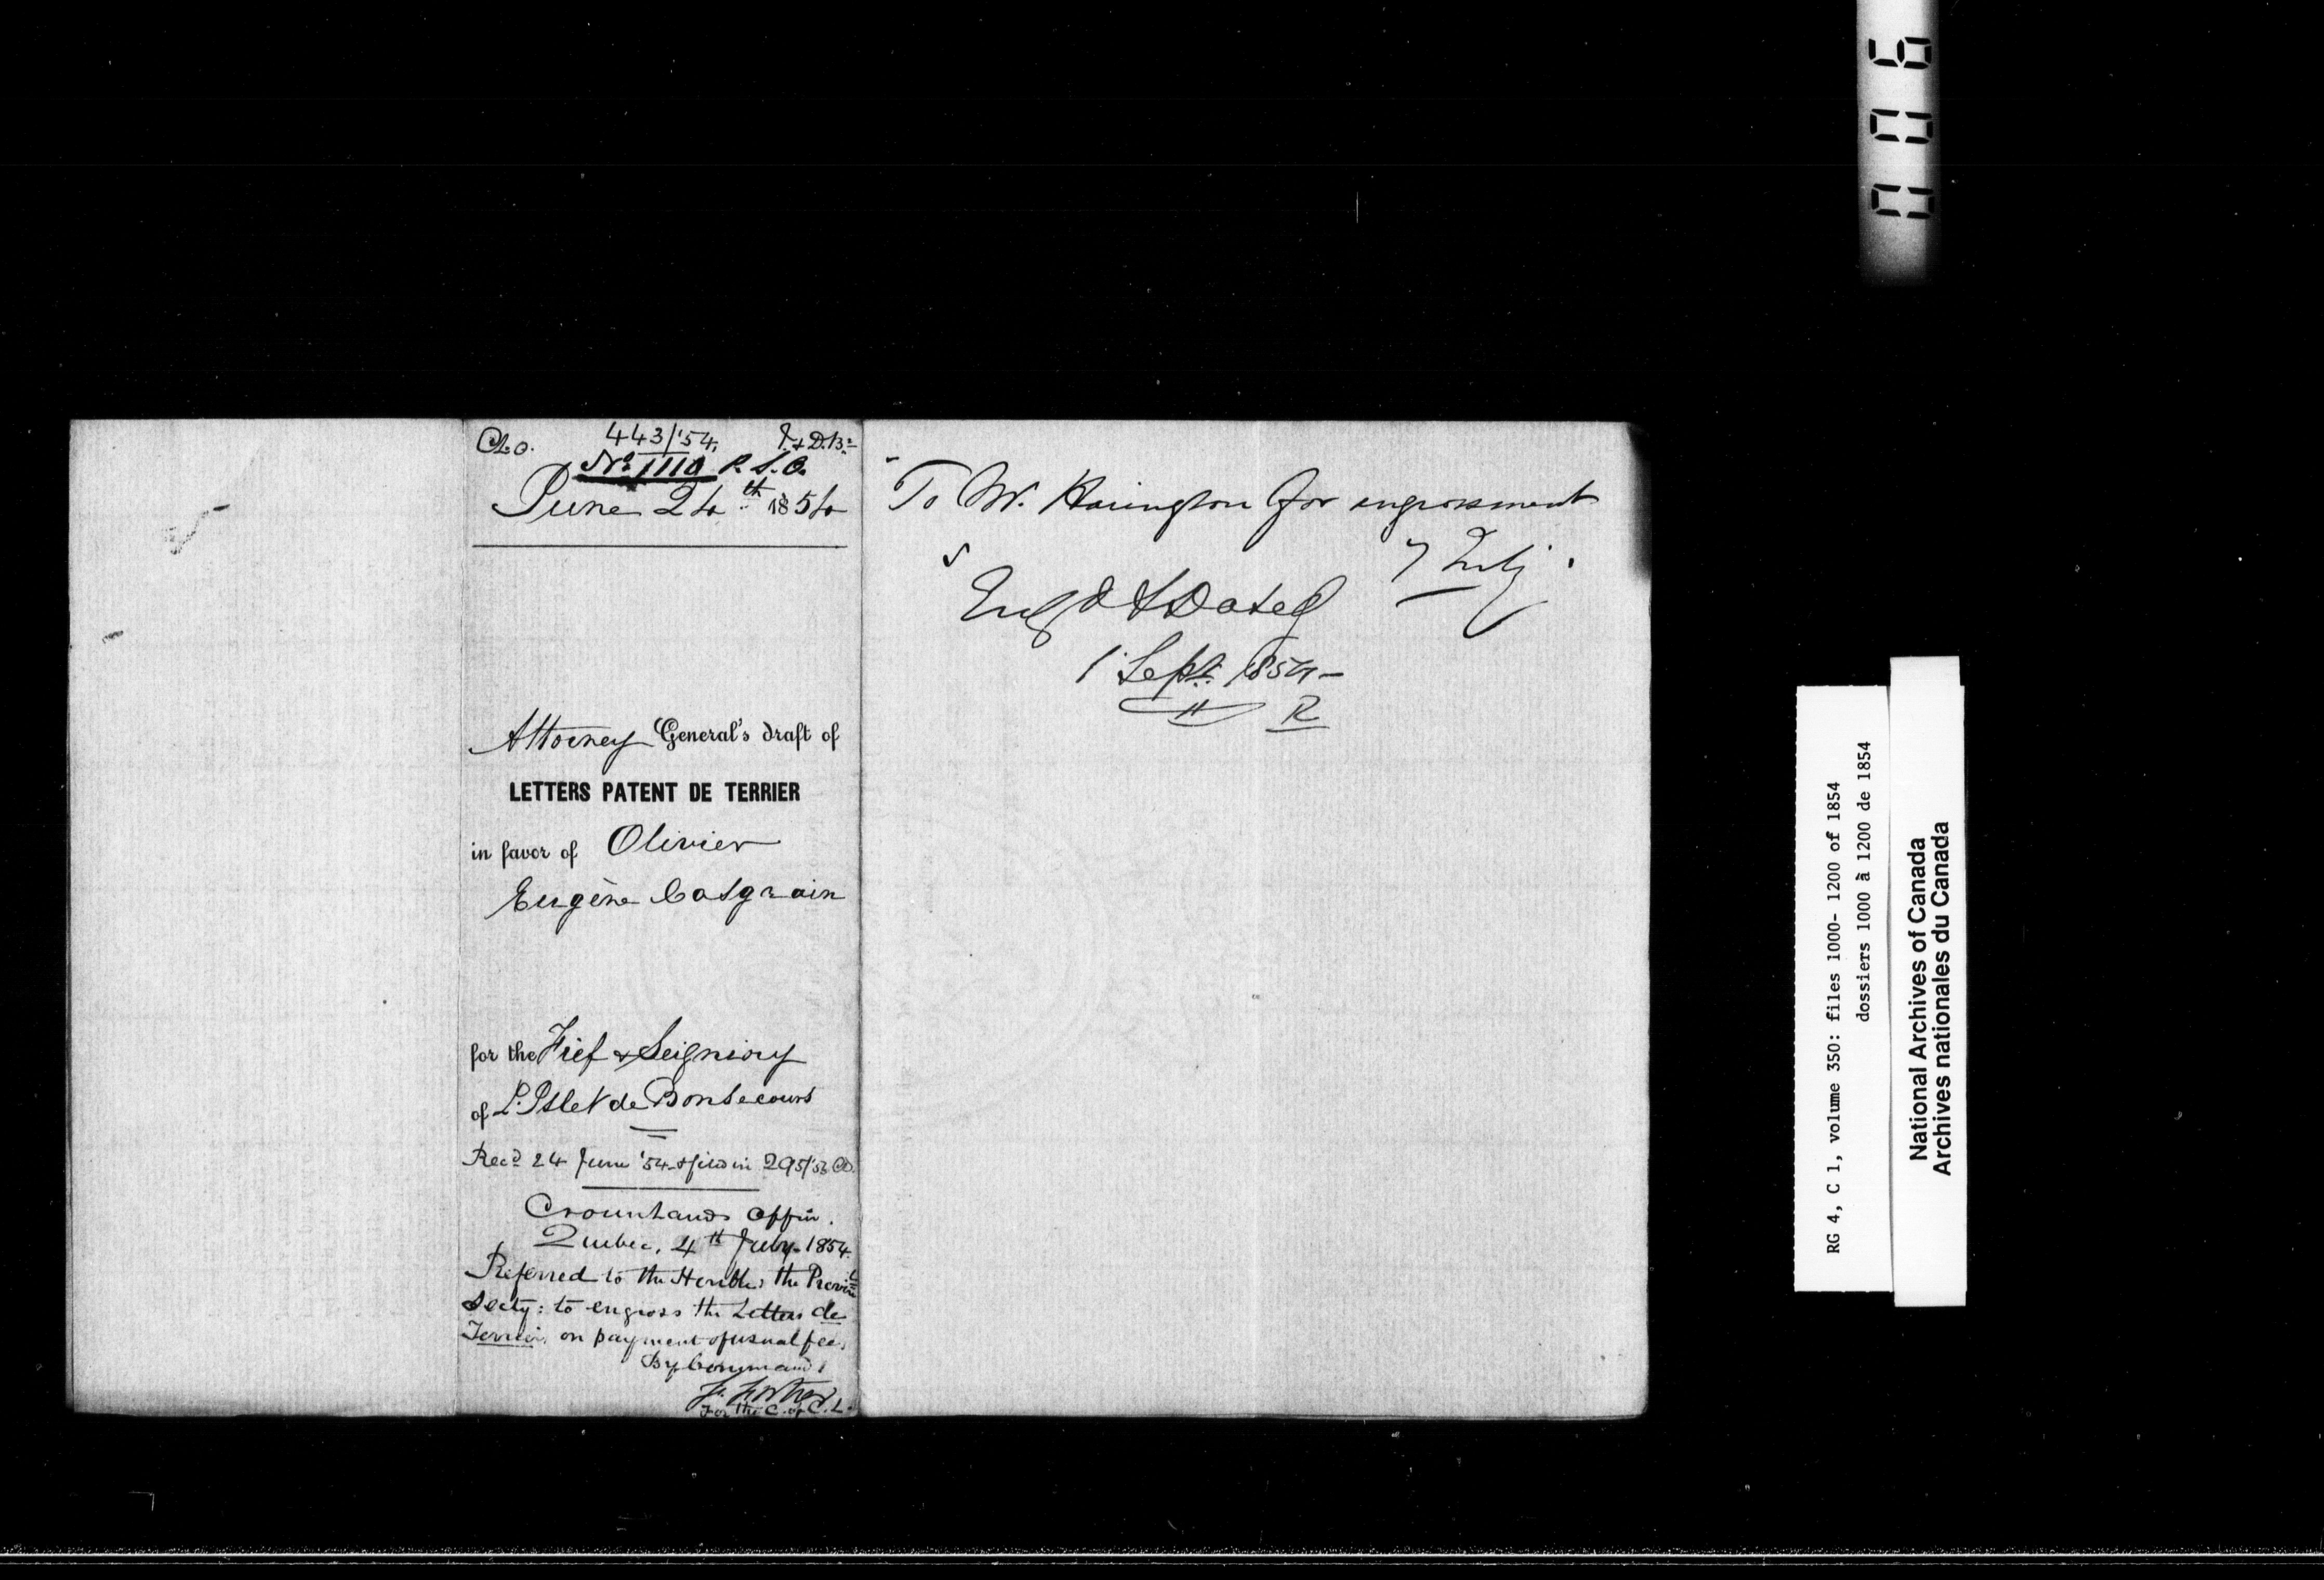 C.L.O. 443/'54. J. & D.B:
No. 1110 P.S.O.
June 24th 1854
Attorney General's draft of
LETTERS PATENT DE TERRIER
in favor of Olivier
Eugène Casgrain
for the Fief & Seigniory
of L'Islet de Bonsecours
Recd 24 June '54 & filed in 295/53 CD.
Crown Lands Office.
Quebec, 4th July 1854.
Referred to the Honble: the Provinl
Secty: to engross the Letters de
Terrier, on payment of usual fee.
By Command,
For the C. of C. L.
To W. Harington for engrossment
7 July.
Engd & Dated
1 Sept. 1854-
H R
006
RG 4, C 1, volume 350: files 1000- 1200 of 1854
dossiers 1000 à 1200 de 1854
National Archives of Canada
Archives nationales du Canada